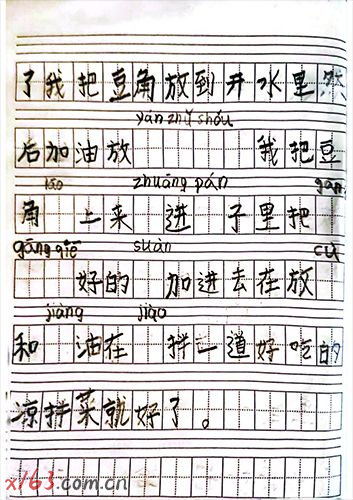 了我把豆角放到开水里然
yán zhǔ shóu
后加油放 我把豆
lāo zhuāng pán gāng
角 上来 进 子里把
gāng qiē suàn cù
好的 加进去在放
jiàng jiào
和 油在 拌一道好吃的
凉拌菜就好了。
x163.com.cn